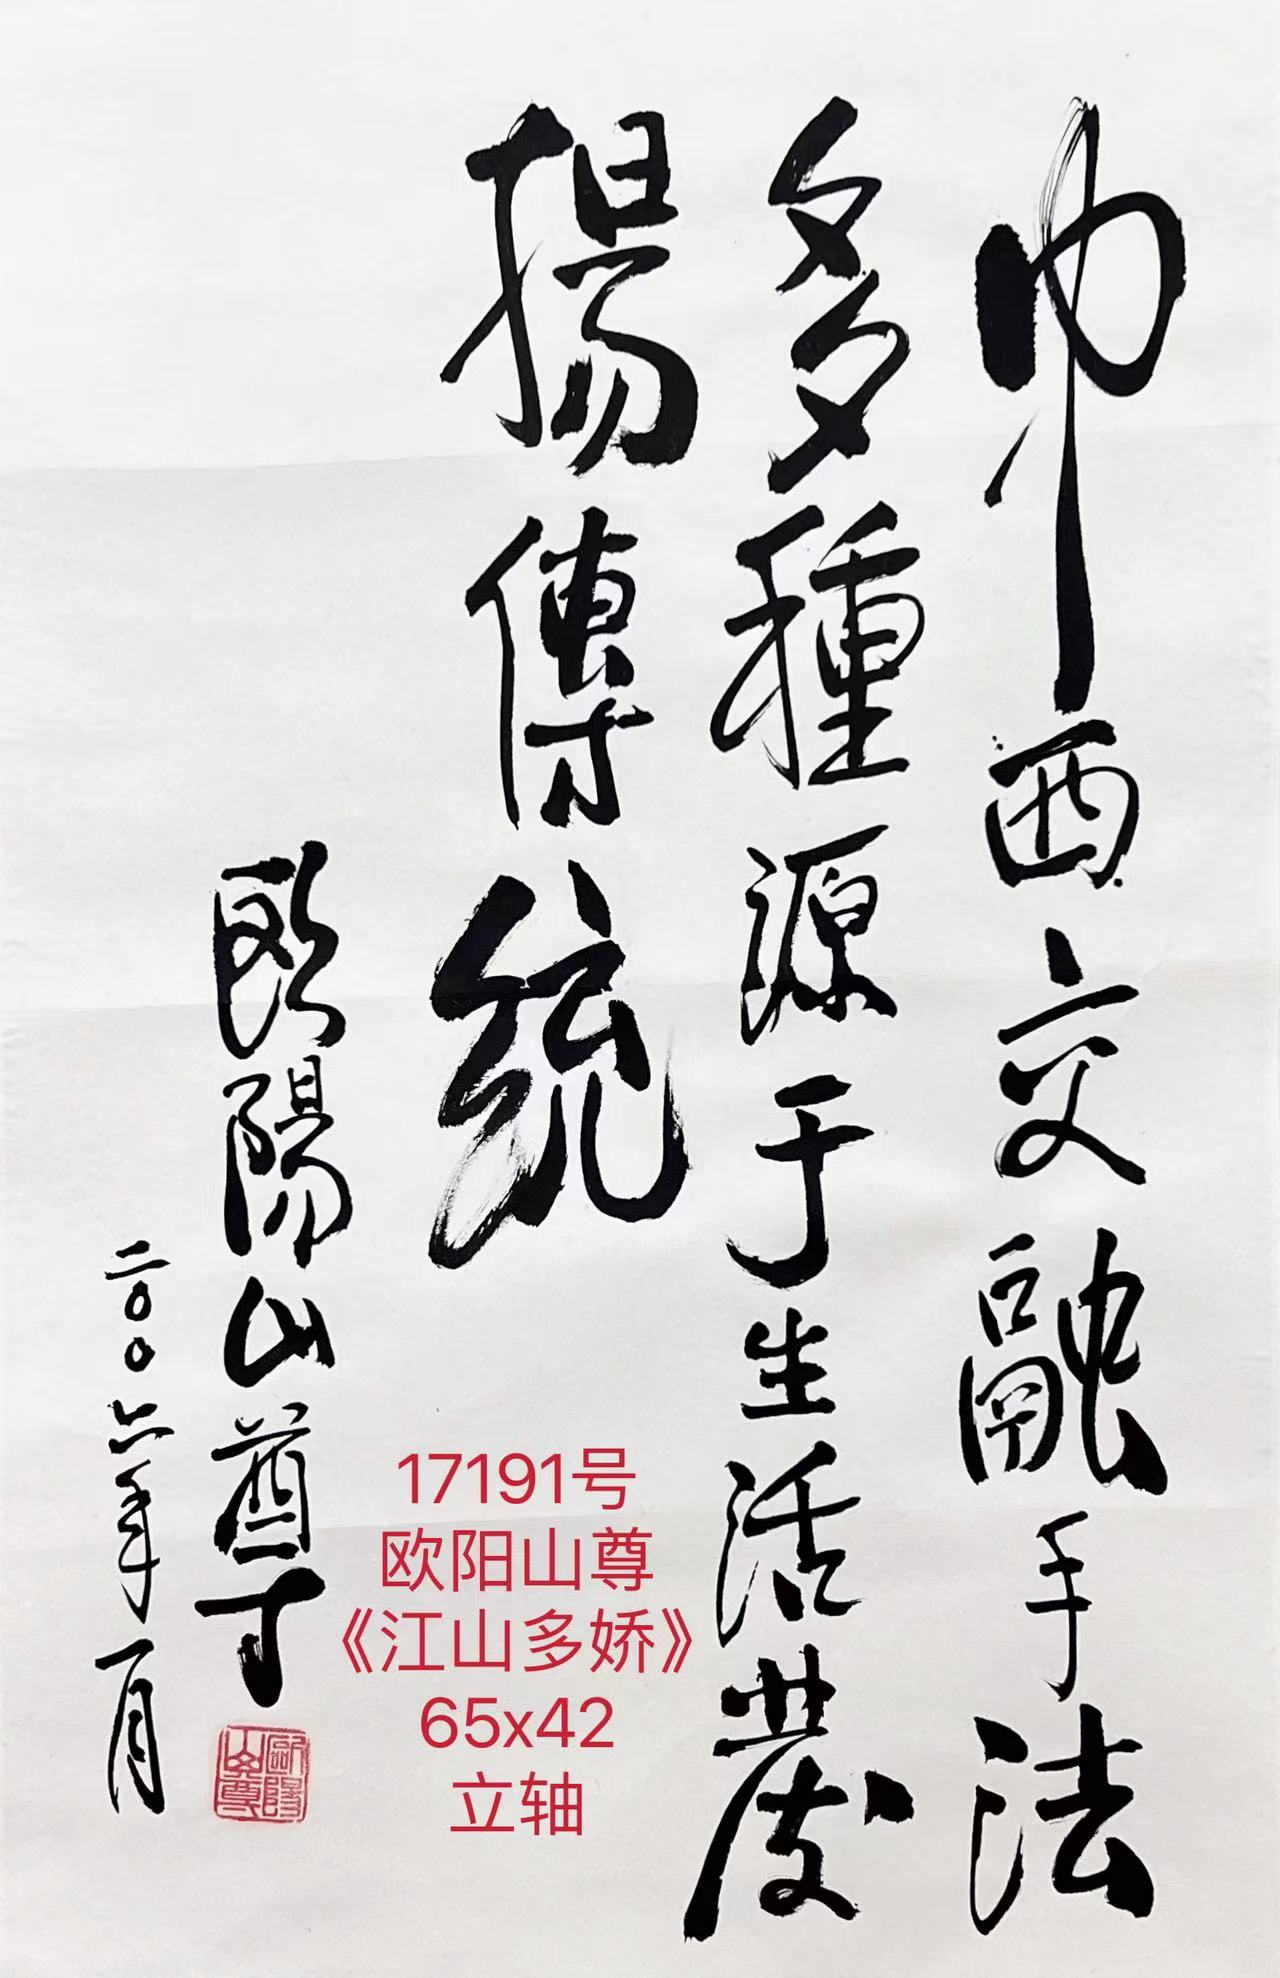 中西交融手法
多種源于生活發
揚傳統
歐陽山尊
二〇〇六年一月
歐陽山尊
17191号
欧阳山尊
《江山多娇》
65x42
立轴